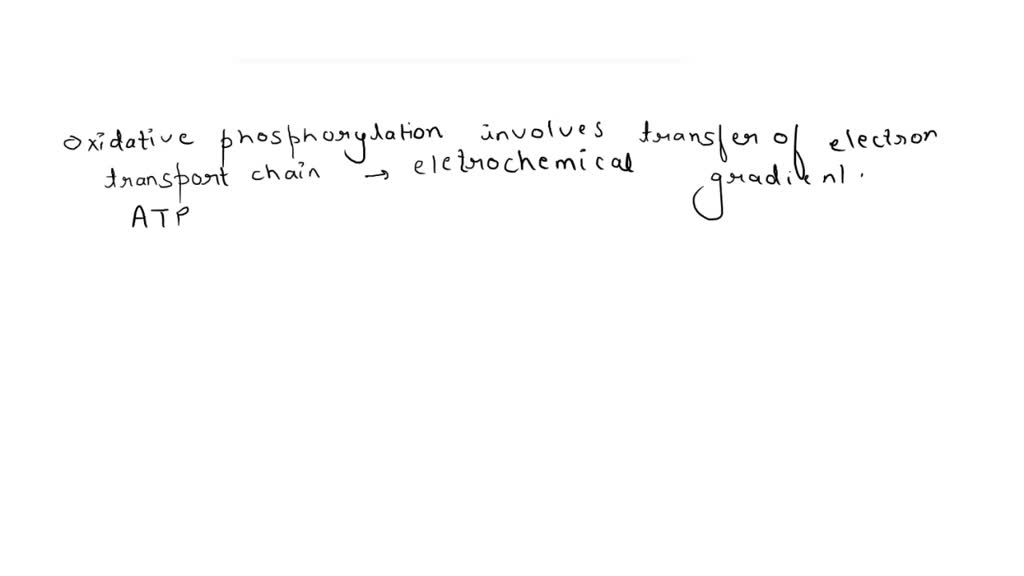 oxidative phosphorylation involves transfer of electron
transport chain → eletrochemical gradient.
ATP